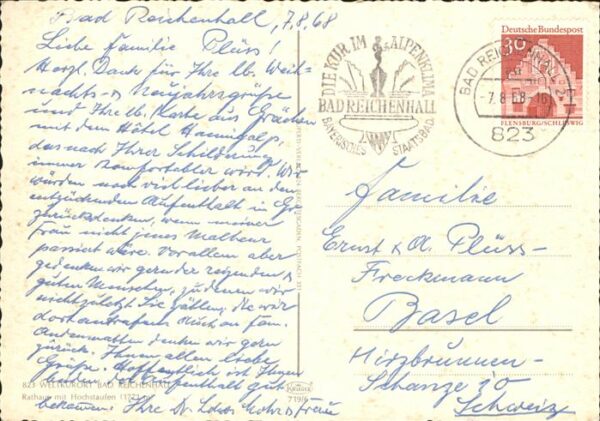 Bad Reichenhall, 7.8.68
Liebe Familie Plüss!
Herzl. Dank für Ihre lb. Weih-
nachts- & Neujahrsgrüße
und Ihre lb. Karte aus Grächen
mit dem Hôtel Hannigalp,
das nach Ihrer Schilderung
immer komfortabler wird. Wir
würden noch viel lieber an den
entzückenden Aufenthalt in Grä
zurückdenken, wenn meiner
Frau nicht jenes Malheur
passiert wäre. Vor allem aber
gedenken wir gern der reizenden &
guten Menschen, zu denen wir
nicht zuletzt Sie zählen, die wir
dort antrafen. Auch an Fam.
Andenmatten denken wir gern
zurück. Ihnen allen liebe
Grüße. Hoffentlich ist Ihnen
Aufenthalt gut
bekommen. Ihre Dr. Mohr & Frau
823 WELTKURORT BAD REICHENHALL
Rathaus mit Hochstaufen (1771 m)
719/6
DIE KUR IM ALPENKLIMA
BAD REICHENHALL
BAYERISCHES STAATSBAD
BAD REICHENHALL 2
-7.8.68-16
823
Deutsche Bundespost
30
FLENSBURG/SCHLESWIG
Familie
Ernst & A. Plüss-
Freckmann
Basel
Hirzbrunnen-
Schanze 70
Schweiz